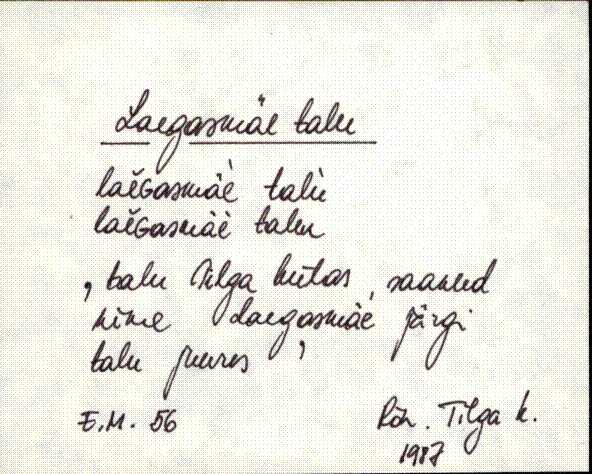 Laegasmäe talu
laĕGasmäè talù
laĕGasmäè talu
, talu Tilga külas, saanud
nime Laegasmäe järgi
talu juures ’
E.M. 56
Rõn. Tilga k.
1987